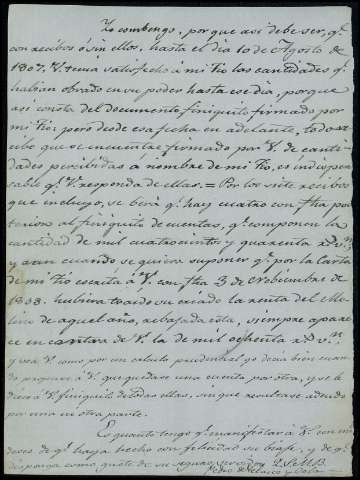 Yo combengo, porque asi debe ser, q.e
con recibos ó sin ellos, hasta el dia 10 de Agosto de
1807, V. tenia satisfecho á mi tio las cantidades q.e
habian obrado en su poder hasta ese dia, porque
asi consta del documento finiquito firmado por
mi tio; pero desde esa fecha en adelante, todo re-
cibo que se encuentre firmado por V. de canti-
dades percibidas á nombre de mi tio, es indispen
sable q.e V. responda de ellas. = Por los siete recibos
que incluyo, se verá q.e hay cuatro con fha pos
terior al finiquito de cuentas, q.e componen la
cantidad de mil cuatrocientos y quarenta r.s v.n
y aun cuando se quiera suponer q.e por la carta
de mi tio escrita á V. con fha 3 de Diciembre de
1808. hubiera tocado su criado la renta del Mo
lino de aquel año, rebajada esta, siempre apare
ce en contra de V. la de mil ochenta r.s v.n
y vea V. como por un calculo prudencial yo decia bien cuan
do propuse á V. que quedase una cuenta por otra, y se le
diese á V. finiquito de todas ellas, sin que resultase adeudo
por una ni otra parte.
Es quanto tengo q.e manifestar á V. con mi
deseos de q.e haya hecho con felicidad su viaje, y de q.e
disponga como guste de su seguro servidor Q. S. M. B.
Pedro de Velasco y